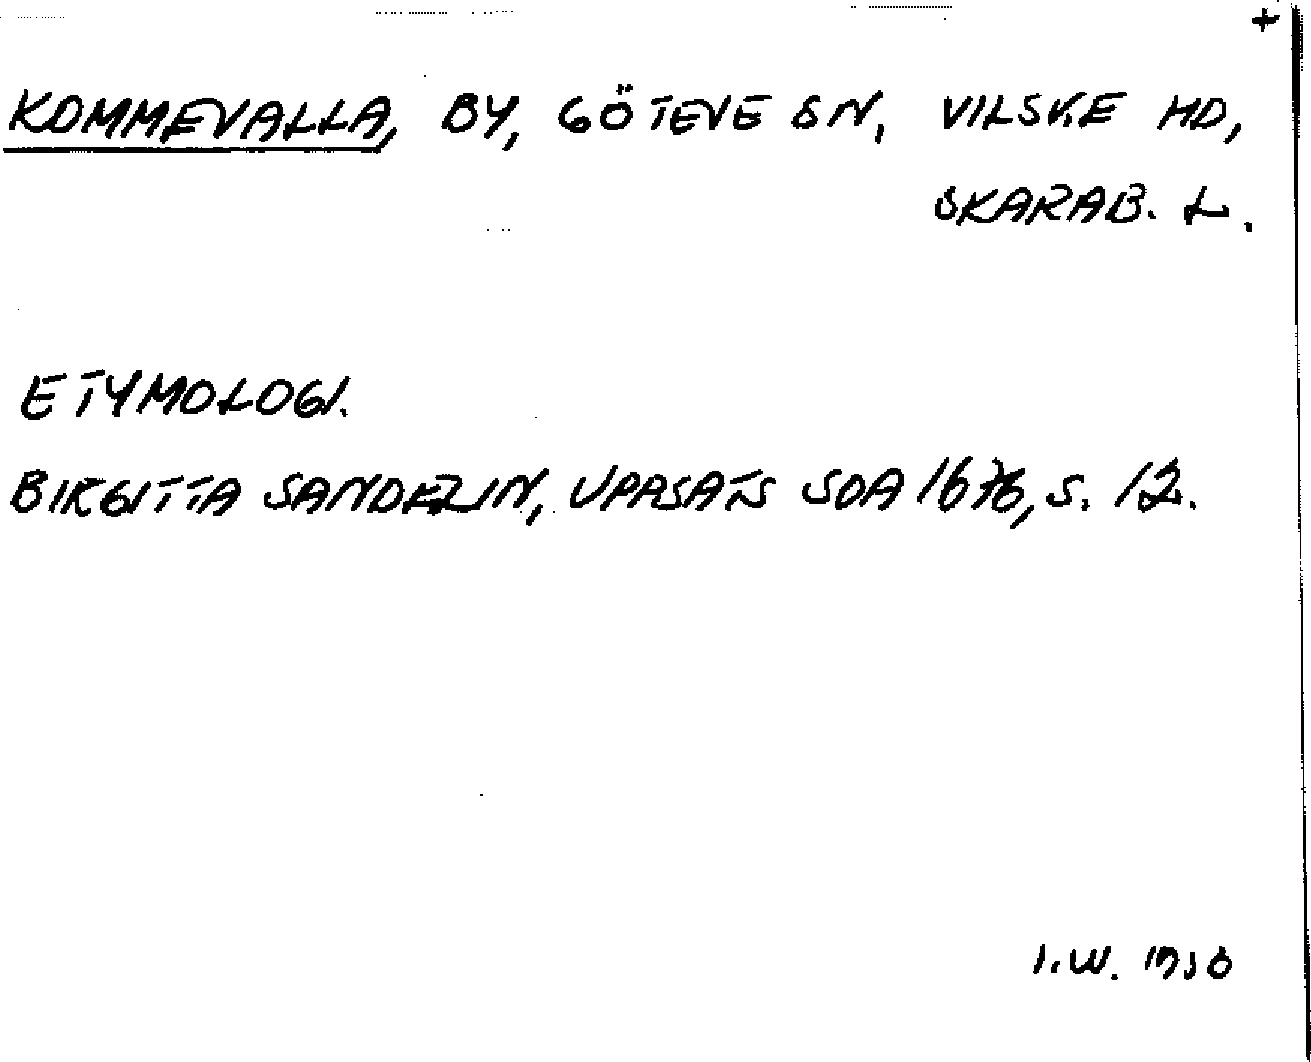 +
KOMMEVALLA, BY, GÖTEVE SN, VILSKE HD,
SKARAB. L.
ETYMOLOGI.
BIRGITTA SANDELIN, UPPSATS SOA 1676, S. 12.
I.W.